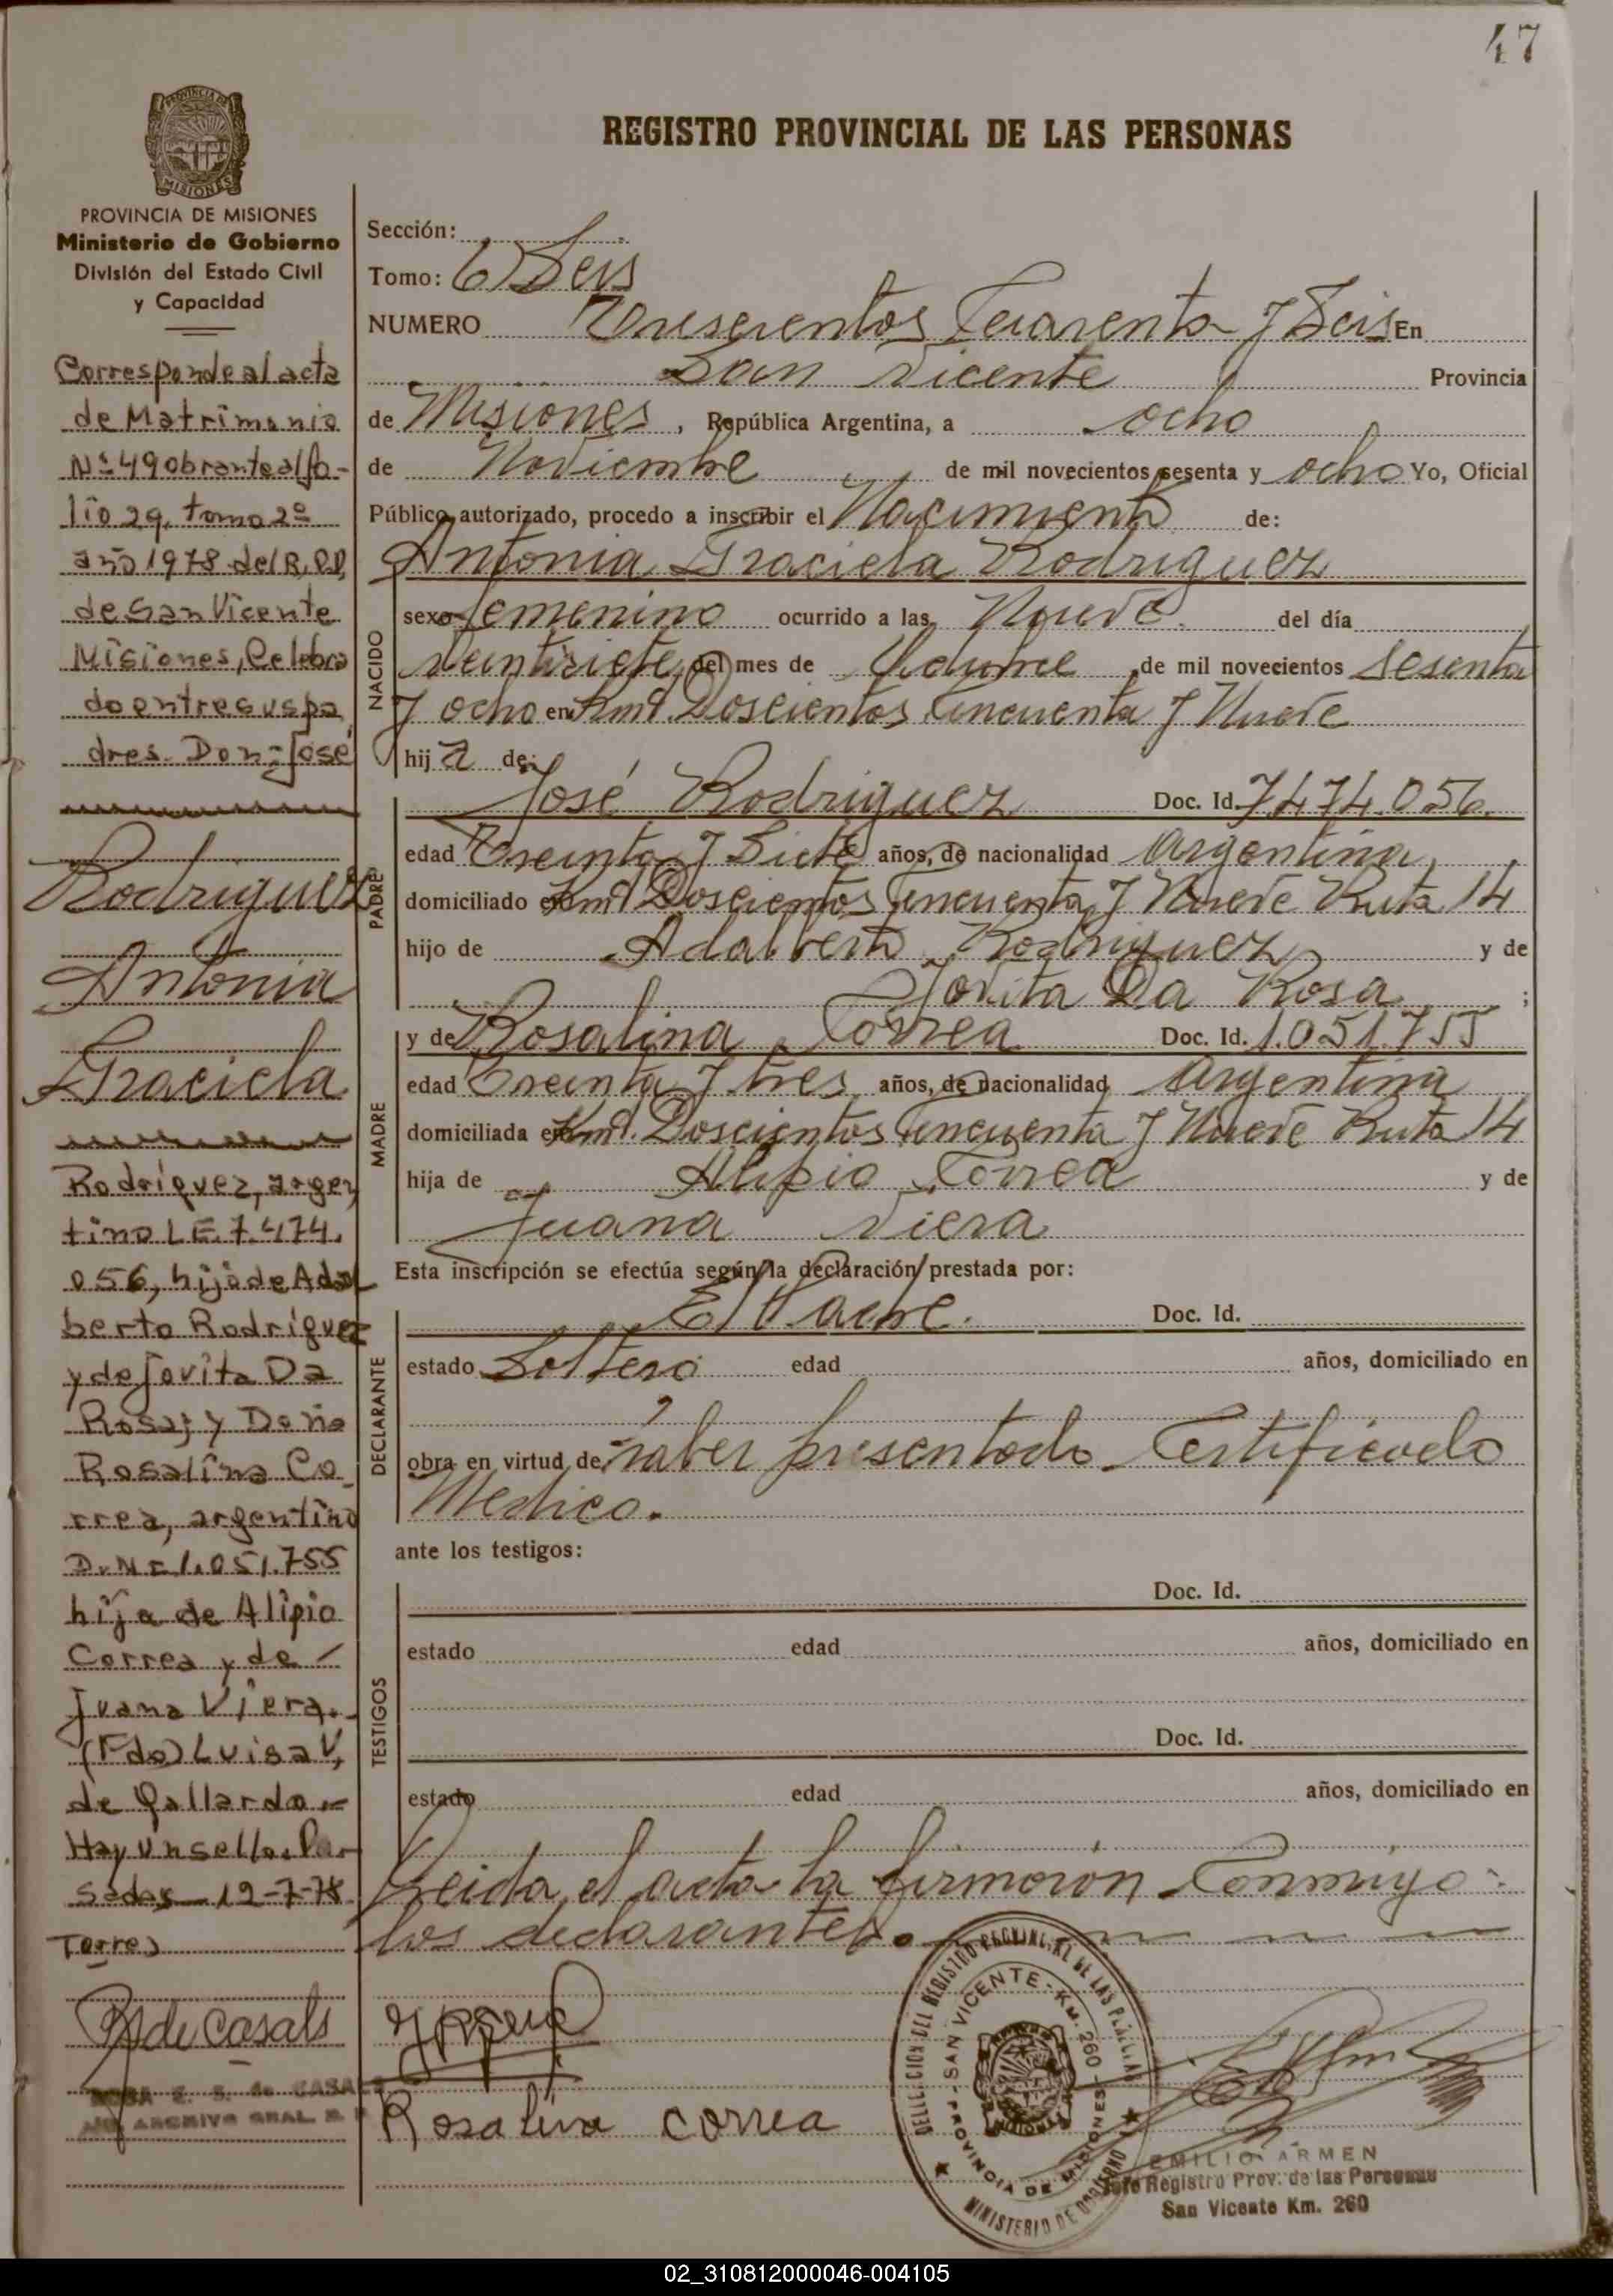 47
REGISTRO PROVINCIAL DE LAS PERSONAS
PROVINCIA DE
MISIONES
PROVINCIA DE MISIONES
Ministerio de Gobierno
División del Estado Civil
y Capacidad
Corresponde al acta
de Matrimonio
Nº 49 obrante al fo-
lio 29, tomo 2º
año 1978 del R.P.P.
de San Vicente
Misiones, Celebra
do entre sus pa
dres. Don José
Rodriguez
Antonia
Graciela
Rodríguez, argen
tino L E. 7.474.
056, hijo de Adal
berto Rodríguez
y de Jovita Da
Rosa; y Doña
Rosalina Co
rrea, argentina
D.N.I 1.051.755
hija de Alipio
Correa y de
Juana Viera.-
(Fdo) Luisa V.
de Gallardo.-
Hay un sello. Po
sadas 12-7-78
Torres
R de Casals
ROSA E. S. de CASALS
ARCHIVO GRAL. R. P.
Sección:
Tomo: 6) Seis
NUMERO Trescientos Cuarenta y Seis En
San Vicente Provincia
de Misiones, República Argentina, a ocho
de Noviembre de mil novecientos sesenta y ocho Yo, Oficial
Público autorizado, procedo a inscribir el Nacimiento de:
Antonia Graciela Rodriguez
NACIDO
sexo femenino ocurrido a las Nueve del día
veintisiete del mes de Octubre de mil novecientos sesenta
y ocho en Kmt. Doscientos Cincuenta y Nueve
hija de:
PADRE
José Rodriguez Doc. Id. 7.474.056.
edad Treinta y Siete años, de nacionalidad Argentina
domiciliado en Kmt Doscientos Cincuenta y Nueve Ruta 14
hijo de Adalberto Rodriguez y de
Jovita Da Rosa ;
MADRE
y de Rosalina Correa Doc. Id. 1.051.755
edad Treinta y tres años, de nacionalidad Argentina
domiciliada en Kmt. Doscientos Cincuenta y Nueve Ruta 14
hija de Alipio Correa y de
Juana Viera
Esta inscripción se efectúa según la declaración prestada por:
DECLARANTE
El Padre. Doc. Id.
estado Soltero edad años, domiciliado en
obra en virtud de haber presentado Certificado
Medico.
ante los testigos:
TESTIGOS
Doc. Id.
estado edad años, domiciliado en
Doc. Id.
estado edad años, domiciliado en
Leida el acta la firmaron Conmigo
los declarantes.
Rosalina Correa
DELEGACION DEL REGISTRO PROVINCIAL DE LAS PERSONAS
SAN VICENTE - KM. 260 -
PROVINCIA DE MISIONES
MINISTERIO DE GOBIERNO
EMILIO ARMEN
Jefe Registro Prov. de las Personas
San Vicente Km. 260
02_310812000046-004105